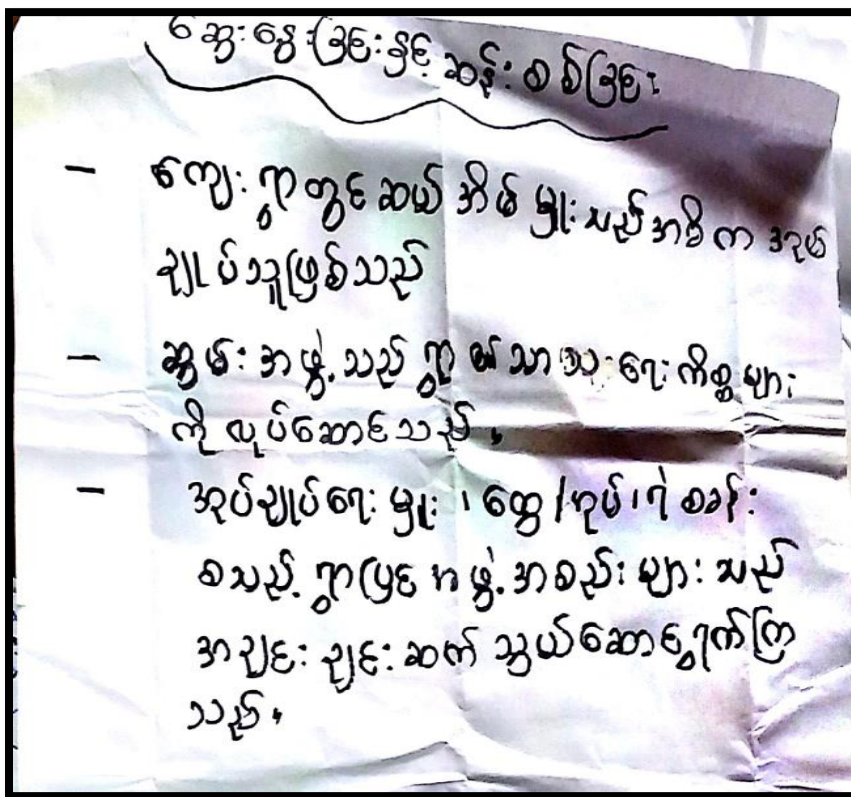 ဆွေးနွေးခြင်းနှင့်ဆန်းစစ်ခြင်း
- ကျေးရွာတွင်ဆယ်အိမ်မှူးသည်အဓိကအုပ်
ချုပ်သူဖြစ်သည်
- ဆွမ်းအဖွဲ့သည်ရွာ၏သာသနာရေးကိစ္စများ
ကိုလုပ်ဆောင်သည်။
- အုပ်ချုပ်ရေးမှူး၊ထွေ/အုပ်၊ရဲစခန်း
စသည့်ရွာပြင်အဖွဲ့အစည်းများသည်
အချင်းချင်းဆက်သွယ်ဆောင်ရွက်ကြ
သည်။